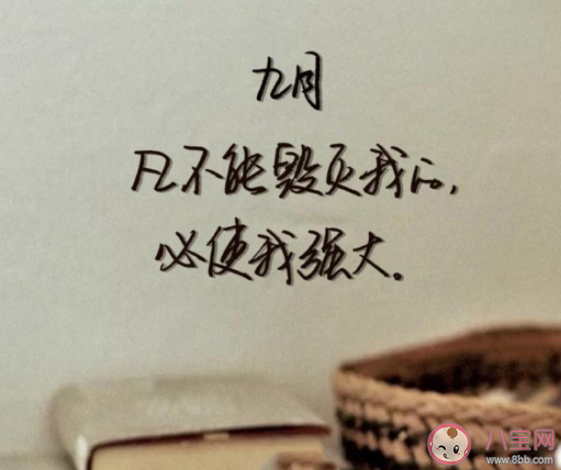 九月
凡不能毁灭我的,
必使我强大。
八宝网
www.8bb.com